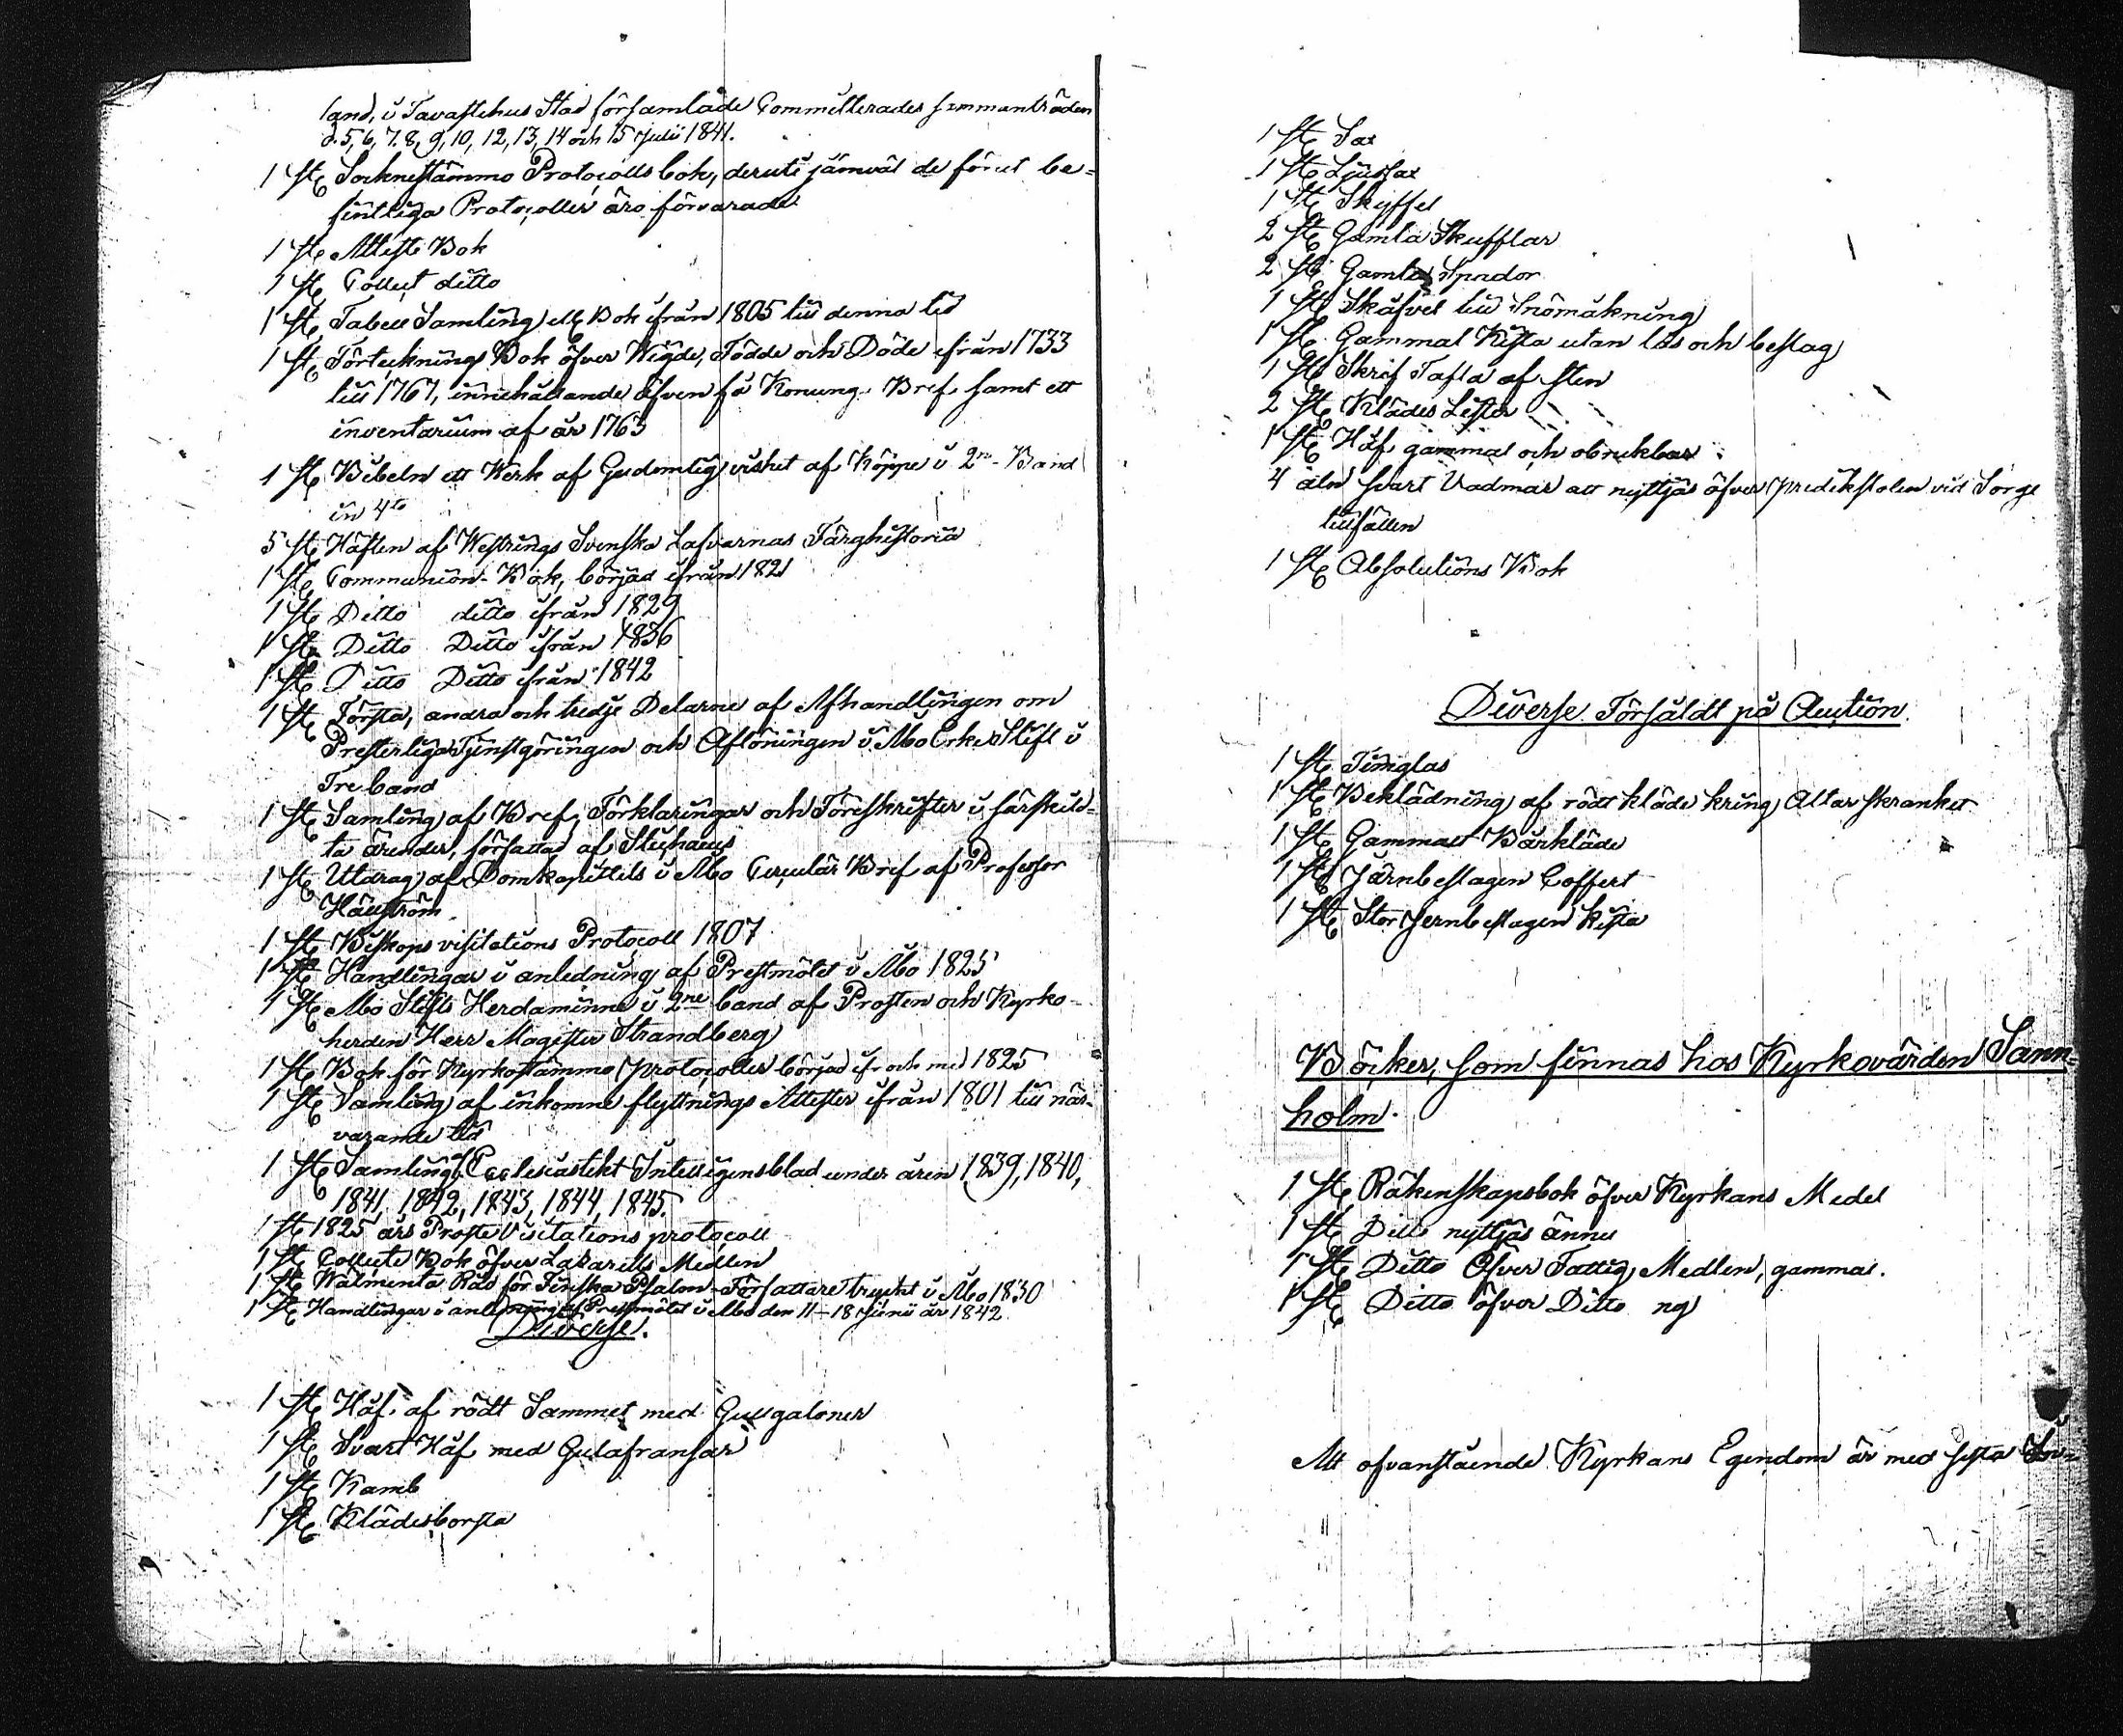 land, i Tavastehus Stad församlade Committerades sammanträden
d. 5, 6, 7. 8, 9, 10, 12, 13, 14 och 15 Julii 1841.
1 st. Socknestämmo Protocolls bok, deruti jämväl de förut be-
fintliga Protocoller äro förvarade
1 st. Atteste Bok
1 st. Collect ditto
1 st. Tabell Samling ell. Bok ifrån 1805 till denna tid
1 st. Förtecknings Bok öfver Wigde, Födde och Döde ifrån 1733
till 1767, innehållande äfven få Konung. Bref samt ett
inventarium af år 1763
1 st. Bibeln ett Werk af Gudomlig vishet af Köppe i 2ne Band
in 4to
5 st. Häften af Westrings Svenska Lafvarnas Färghistoria
1 st. Communion-Bok, börjad ifrån 1821
1 st. Ditto ditto ifrån 1829
1 st. Ditto Ditto ifrån 1836
1 st. Ditto Ditto ifrån 1842
1 st. Första, andra och tredje Delarne af Afhandlingen om
Presterliga Tjenstgöringen och Aflöningen i Åbo Erke Stift i
Tre band
1 st. Samling af Bref, Förklaringar och Föreskrifter i särskild-
ta ärender, författad af
1 st. Utdrag af Domkapitlets i Åbo Circulär Bref af Professor
Hällström
1 st. Biskops visitations Protocoll 1807
1 st. Handlingar i anledning af Prestmötet i Åbo 1825
1 st. Åbo Stifts Herdaminne i 2ne band af Prosten och Kyrko-
herden Herr Magister Strandberg
1 st. Bok för Kyrkostämmo protocoller börjad ifr och med 1825
1 st. Samling af inkomne flyttnings Attester ifrån 1801 till när-
varande tid
1 st. Samling af Ecclesiastikt Intelligensblad under åren 1839, 1840,
1841, 1842, 1843, 1844, 1845.
1 st 1825 års Proste Visitations protocoll
1 st. Collecte Bok öfver Lazaretts Medlen
1 st. Wälmenta Råd för Finska Psalm-Författare tryckt i Åbo 1830
1 st. Handlingar i anledning af Prestmötet i Åbo den 11-18 Junii år 1842
Diverse.
1 st. Håf af rödt Sammet med Gullgaloner
1 st. Svart Håf med Gulafransar
1 st. Kamb
1 st. Klädesborsta
1 st. Sax
1 st. Ljussax
1 st. Skyffel
2 st. Gamla Skufflar
2 st. Gamla Spador
1 st. Skåfvel till Snömåkning
1 st. Gammal Kista utan lås och beslag
1 st. Skrif Tafla af sten
2 st. Klädes Lister
1 st. Håf gammal och obrukbar
4 aln svart Vadmar att nyttjas öfver predikstolen vid Sorge
tillfällen
1 st. Absolutions Bok
Diverse Försåldt på Auction.
1 st. Timglas
1 st. Beklädning af rödt kläde kring Altar skranket
1 st. Gammalt Bårkläde
1 st. Järnbeslagen Coffert
1 st. Stor jernbeslagen kista
Böcker, som finnas hos Kyrkovärden Sann-
holm.
1 st. Räkenskapsbok öfver Kyrkans Medel
1 st. Ditto nyttjas ännu
1 st. Ditto Öfver Fattig Medlen, gammal.
1 st. Ditto öfver Ditto ny
Att ofvanstående Kyrkans Egendom är med sista In-